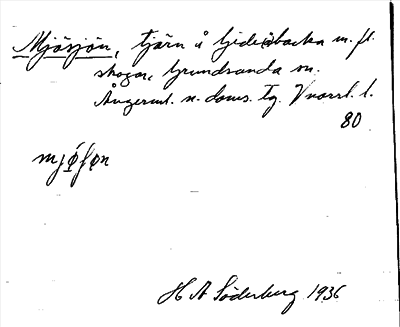 Mjösjön, tjärn å Gideåbacka m. fl.
skogar, Grundsunda sn.
Ångerml. n. doms. tg. Vnorrl. l.
80
mjøʃøn
H A Söderberg 1936